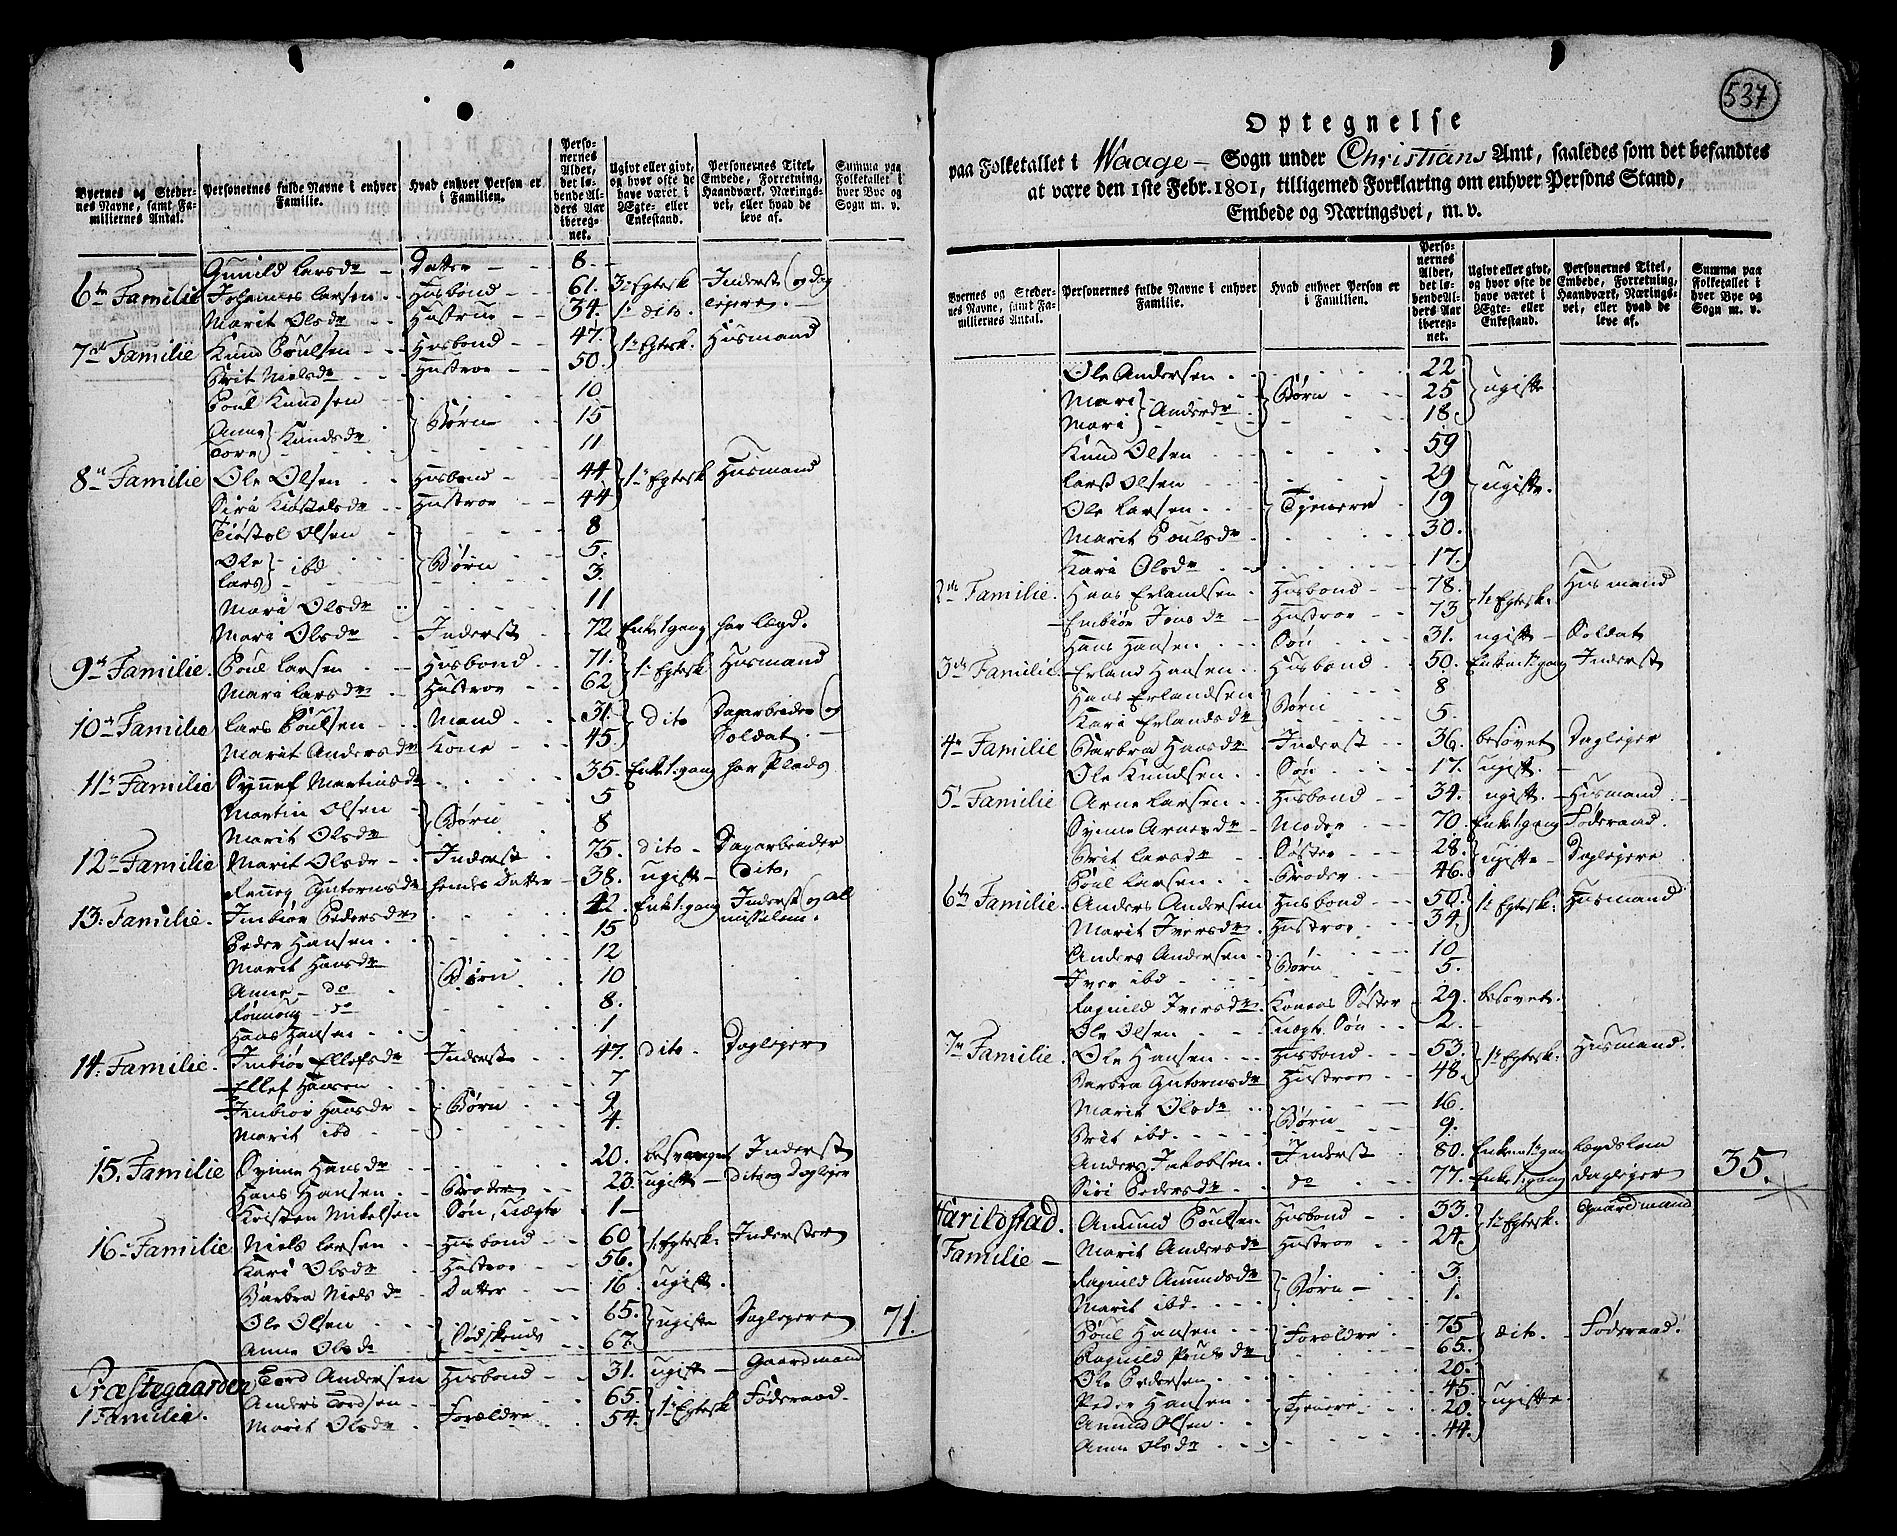 Byernes og Steder-
nes Navne, samt Fa-
miliernes Antal.
Personernes fulde Navne i enhver
Familie.
Hvad enhver Person er
i Familien.
Perso-
nernes
Alder,
det lø-
bende Al-
ders Aar
ibereg-
net.
Ugivt eller givt,
og hvor ofte de
have været i
Ægte- eller
Enkestand.
Personernes Titel,
Embede, Forretning,
Haandværk, Nærings-
vei, eller hvad de
leve af.
Summa paa
Folketallet i
hver Bye og
Sogn m. v.
Gunild Larsdr Datter 8
6te Familie Johannes Larsen Husbond 61. 3. Egtesk Inderst og Dag
Marit Olsdr Hustrue 34. 1. dito. leyere
7de Familie Knud Poulsen Husbond 47. 1. Egtesk. Husmand
Brit Nielsdr Hustroe 50.
Poul Knudsen 10
Anne } Knudsdr Børn 15
Tore 11
8de Familie Ole Olsen Husbond 44 1. Egtesk Husmand
Siri Kiøstelsdr Hustroe 44
Tiøstol Olsen 8
Ole } ibd Børn 5.
Lars 3.
Mari Olsdr 11
Mari Olsdr Inderst 72 Enke 1 gang har Lægd.
9de Familie. Poul Larsen Husbond 71. 1. Egtesk Husmand
Mari Larsdr Hustroe 62
10de Familie Lars Poulsen Mand 31. dito Dagarbeider og
Marit Andersdr Kone 45. Soldat.
11te Familie Synnef Martinsdr 35. Enke 1. gang har Plads
Martin Olsen 5
Marit Olsdr Børn 8
12te Familie Marit Olsdr Inderst 75. dito Dagarbeider
Guttormsdr hendes Datter 38. ugift Dito,
13: Familie. Imbiør Pedersdr 42. Enke 1. gang Inderst og al
Peder Hansen 15 misselem.
Marit Hansdr 12
Anne do Børn 10
Rønnoug do 8.
Hans Hansen 1
14: Familie. Imbiør Ellefsdr Inderst 47. dito. Dagleyer
Ellef Hansen 7
Imbiør Hansdr Børn 9
Marit ibd 4.
15. Familie Synne Hansdr 20. besvangret Inderst
Hans Hansen Broder 23. ugift dito og Dagleyer
Kristen Mikelsen Søn, uægte 1
16. Familie Niels Larsen Husbond 60 1. Egtesk. Inderster
Kari Olsdr Hustroe 56.
Barbra Nielsdr Datter 16 ugift.
Ole Olsen 65. ugifte Dagleyere 71.
Anne Olsdr Sødskende 67.
Præstegaarden Tord Andersen Husbond 31. ugift Gaardmand
1 Familie. Anders Tordsen 65. 1. Egtesk Føderaad.
Marit Olsdr Forældre 54.
537
Optegnelse
paa Folketallet i Waage Sogn under Christians Amt, saaledes som det befandtes
at være den 1ste Febr. 1801, tilligemed Forklaring om enhver Persons Stand,
Embede og Næringsvei, m. v.
Byernes og Steder-
nes Navne, samt Fa-
miliernes Antal.
Personernes fulde Navne i enhver
Familie.
Hvad enhver Person er
i Familien.
Perso-
nernes
Alder,
det lø-
bende Al-
ders Aar
ibereg-
net.
Ugivt eller givt,
og hvor ofte de
have været i
Ægte- eller
Enkestand.
Personernes Titel,
Embede, Forretning,
Haandværk, Nærings-
vei, eller hvad de
leve af.
Summa paa
Folketallet i
hver Bye og
Sogn m. v.
Ole Andersen 22
Mari } Andersdr Børn 25 ugifte
Mari 18
Knud Olsen 59
Larst Olsen 29
Ole Larsen Tjenere 19 ugifte.
Marit Poulsdr 30.
Kari Olsdr 17.
2de Familie. Hans Erlandsen Husbond 78. 1. Egtesk. Husmand
Embiør Jonsdr Hustroe 73
Hans Hansen Søn 31. ugift Soldat
3die Familie Erland Hansen Husbond 50. Enkem 1. gang Inderst
Hans Erlandsen 8
Kari Erlandsdr Børn 5.
4de Familie Barbra Hansdr Inderst 36. besovet Dagleyer
Ole Knudsen Søn 17. ugift.
5te Familie Arne Larsen Husbond 34. ugift. Husmand
Synne Arnesdr Moder 70. Enke 1 gang Føderaad.
Brit Larsdr Søster 28. ugifte Dagleyere
Poul Larsen Broder 46.
6te Familie. Anders Andersen Husbond 50. 1. Egtesk. Husmand
Marit Iversdr Hustroe 34.
Anders Andersen 10
Iver ibd Børn 5.
Ragnild Iversdr Konens Søster 29. besovet.
Ole Olsen uægte Søn 2.
7de Familie. Ole Hansen Husbond 53. 1. Egtesk. Husmand.
Barbra Guttormsdr Hustroe 48.
Marit Olsdr 16.
Brit ibd. Børn 9.
Anders Jakobsen Inderst 80. Enkem 1. gang Lægdslem
Siri Pedersdr do 77. Enke 1. gang Dagleyer 35.
Harildstad. Amund Poulsen Husbond 33. 1. Egtesk. Gaardmand
1 Familie Marit Andersdr Hustroe 24.
Ragnild Amundsdr 3.
Marit ibd. Børn 1.
Poul Hansen Forældre 75 dito. Føderaad.
Ragnild Poulsdr 65.
Ole Pedersen 20.
Peder Hansen 45.
Amund Olsen Tjenere 20. ugifte.
Anne Olsdr 44.